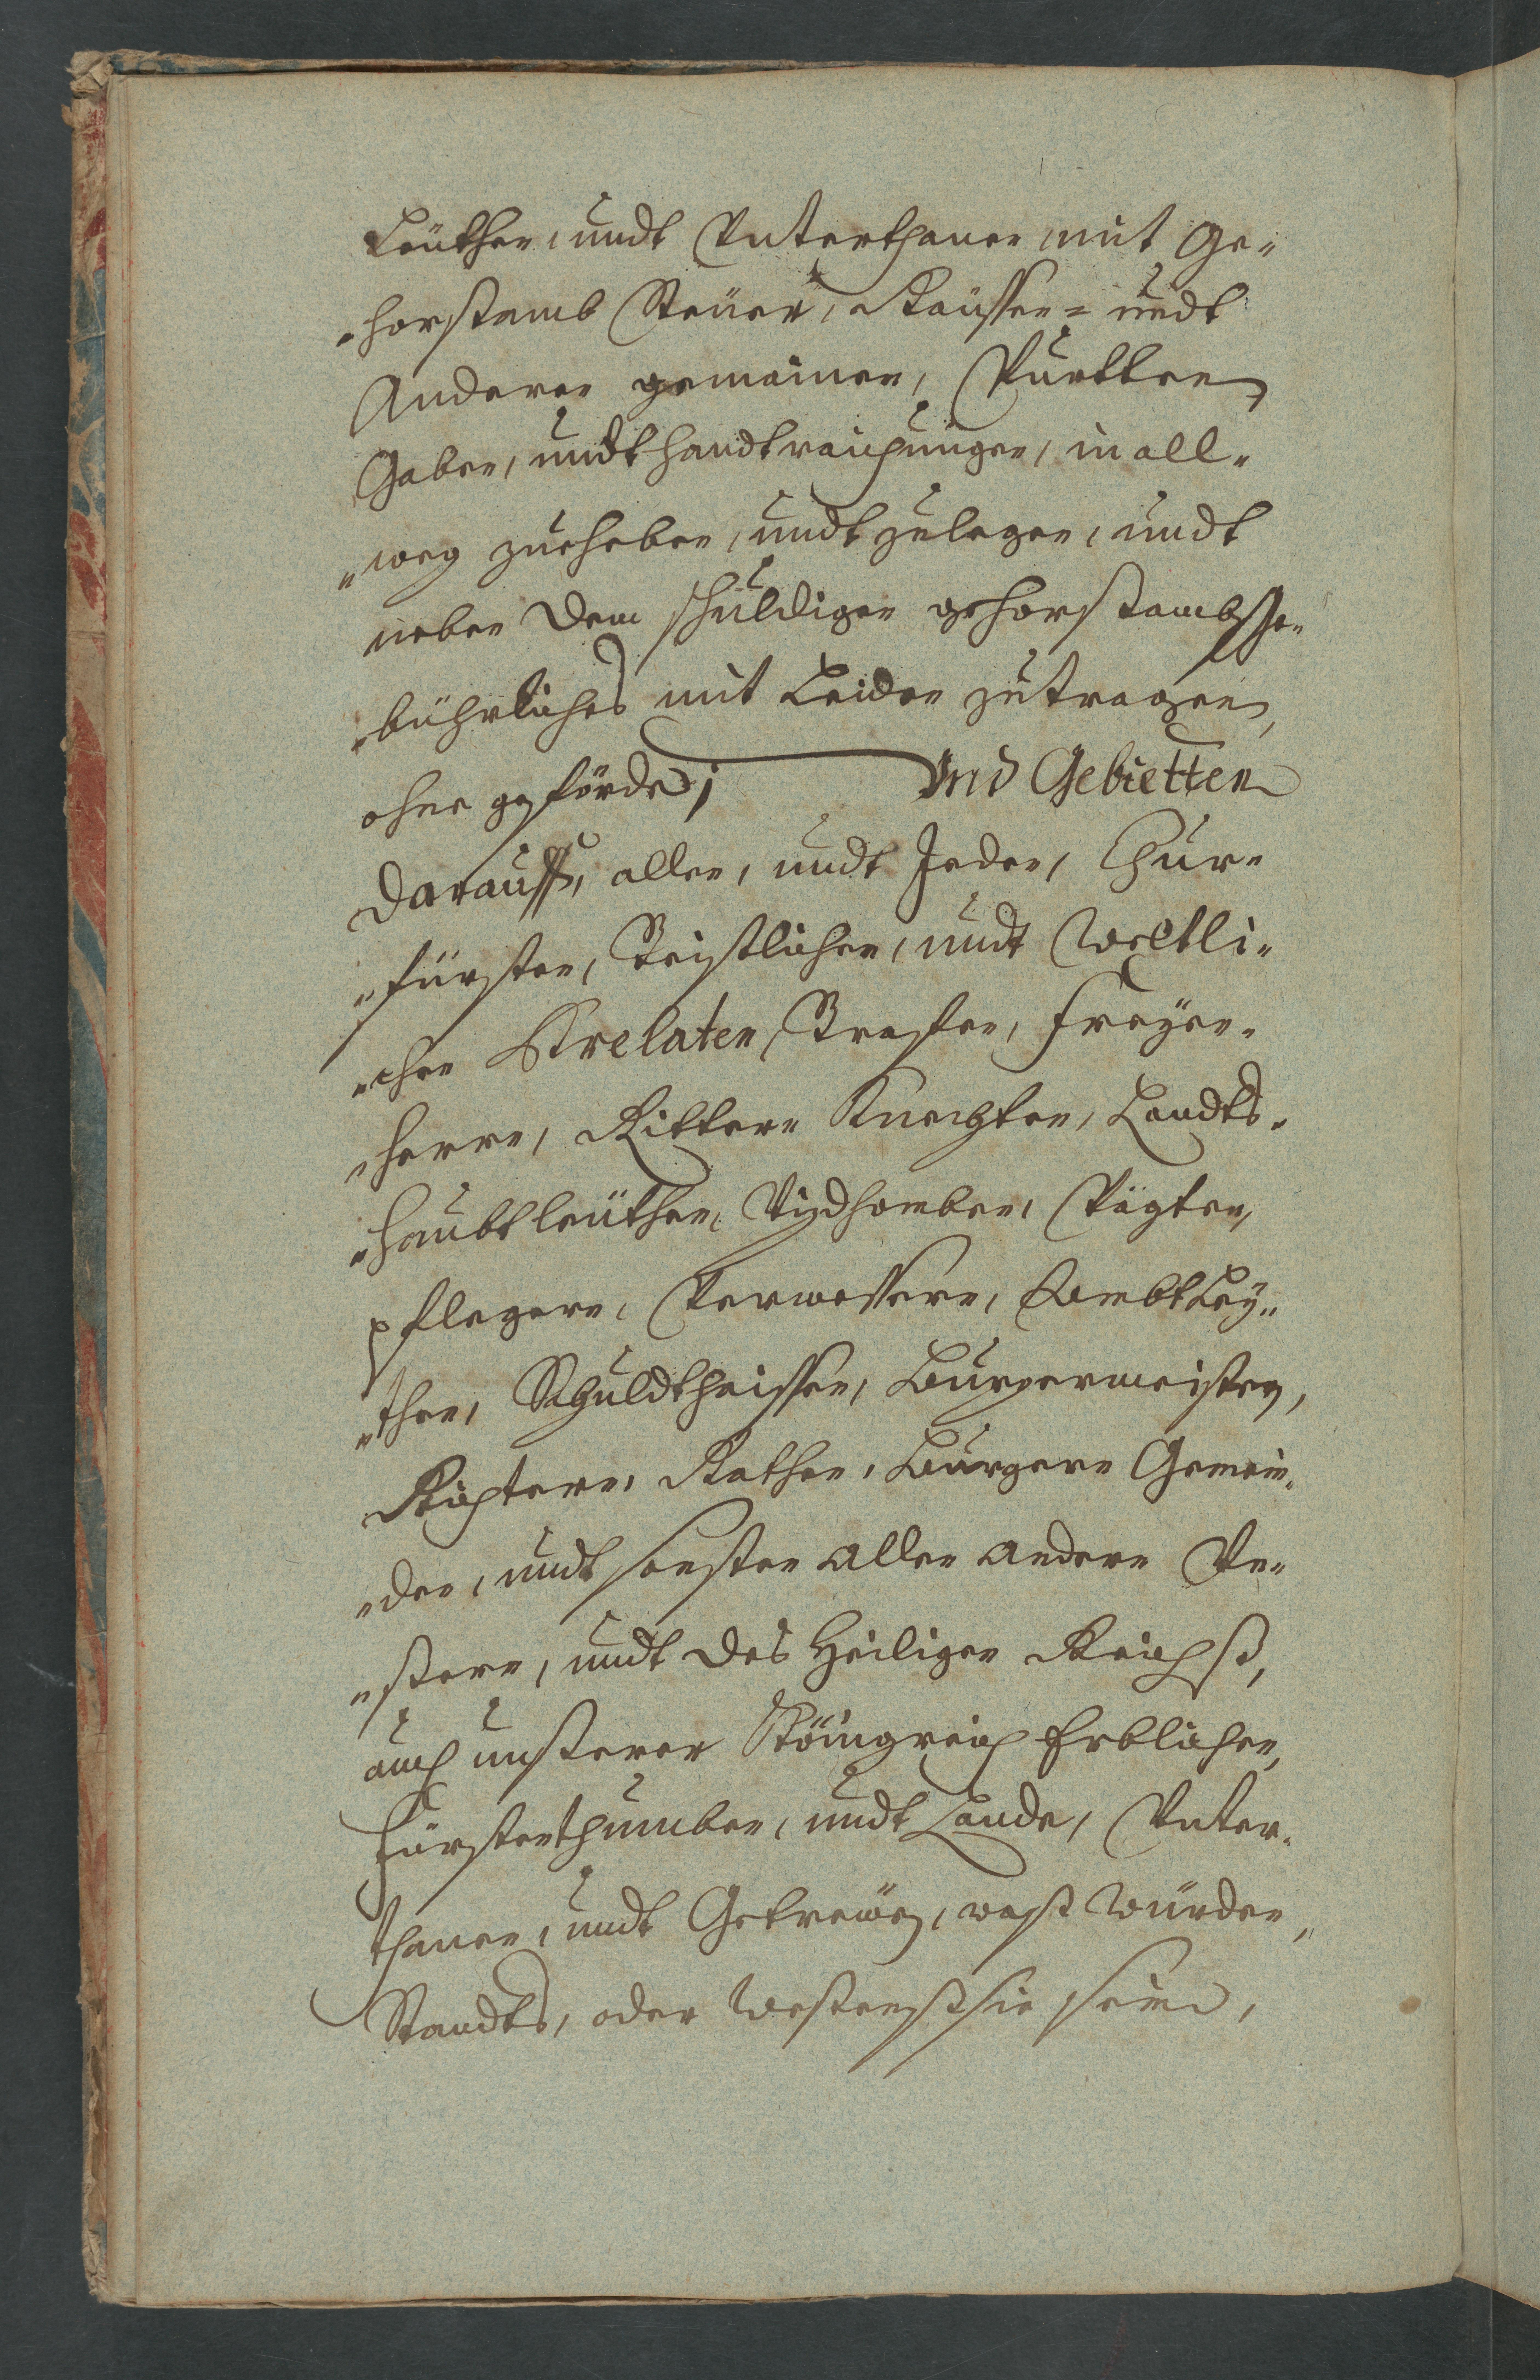 Leüthen, undt Vnterthanen, mit Ge„
„horsamb Steüer, Raüssen= undt
Anderen gemainen, Pürtten,
Gaben, undt handtraichungen, in all„
„weg zuheben, undt zulegen, undt
neben dem schuldigen gehorsambs Ge„
„bührliches mit Leiden zutragen,
ohne gefördte; Vnd Gebietten
darauff, allen, undt Jeden, Chur„
„fürsten, Geistlichen, undt Weltli„
„chen Prelaten, Graffen, Freyen„
„herrn, Rittern Knechten, Landts„
„haubtleüthen, Vizdhomben, Vögten,
Pflegern, Verwessern, Ambtley„
„then, Schuldtheissen, Burgermeistern,
Richtern, Räthen, Burgern Gemein„
„den, undt sonsten allen andern Vn„
„sern, undt des Heiligen Reichß,
auch unserer Königreich Erblichen,
Fürstenthumben, undt Lande, Vnter„
thanen, undt Getrewen, waß Würden,
Standts, oder Wesens sie seind,